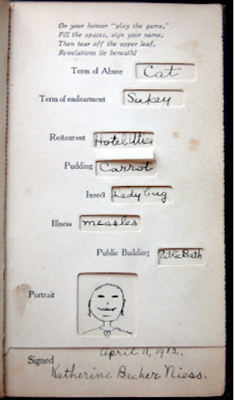 On your honour "play the game,"
Fill the spaces, sign your name.
Then tear off the upper leaf,
Revelations lie beneath!
Term of Abuse Cat
Term of endearment Sukey
Restaurant Hotel Utica
Pudding Carrot
Insect Ladybug
Illness measles
Public Building Public Bath
Portrait
April 11, 1912.
Signed Katherine Becker Niess.